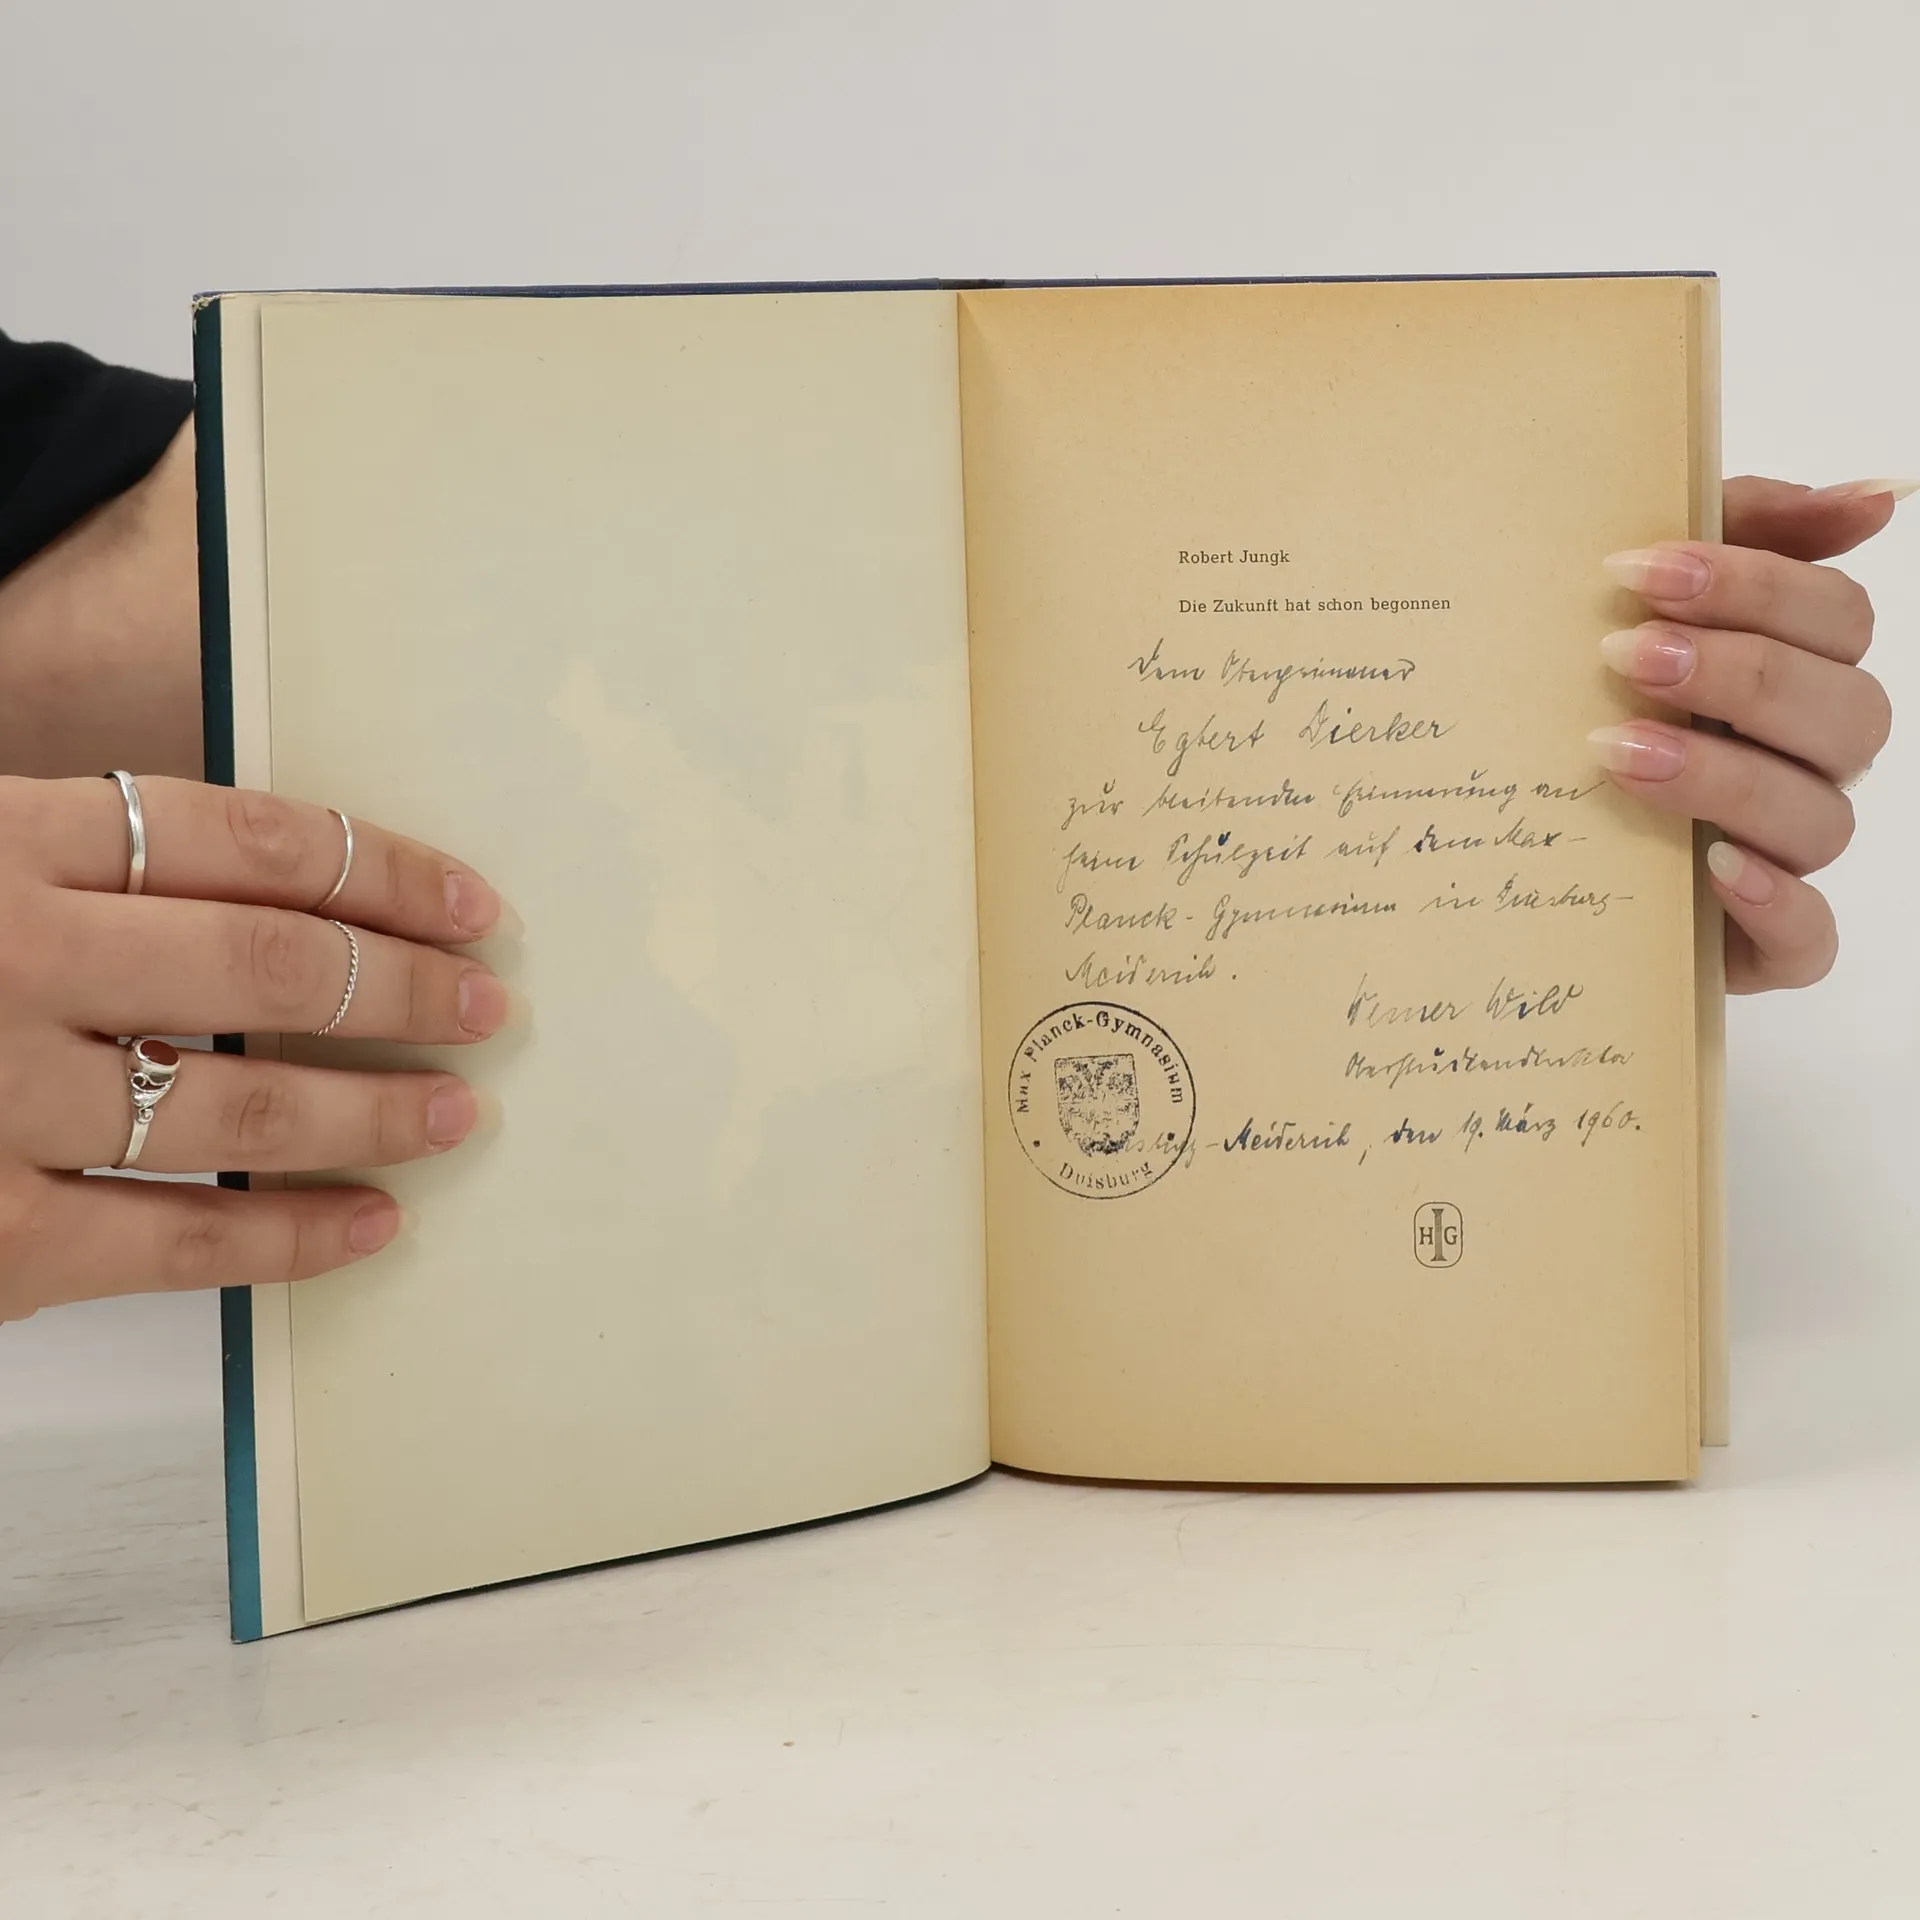 Robert Jungk
Die Zukunft hat schon begonnen
Dem Oberprimaner
Egbert Dierker
zur bleibenden Erinnerung an
seine Schulzeit auf dem Max-
Planck-Gymnasium in Duisburg-
Meiderich.
Werner Wild
Oberstudiendirektor
Max Planck-Gymnasium
Duisburg
Duisburg-Meiderich, den 19. März 1960.
H I G